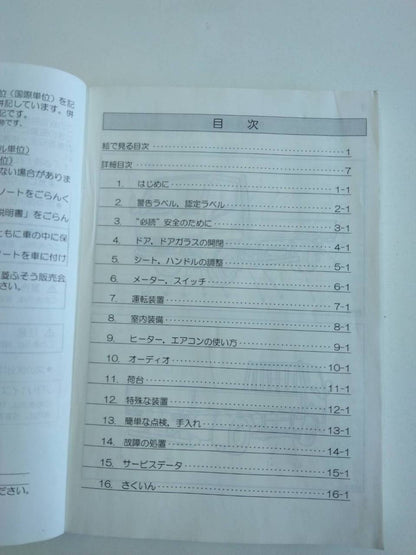 位（国際単位）を記
併記しています。併
記です。
ル単位）
位）
ない場合がありま
ノートをごらんく
説明書」をごらん
ともに車の中に保
ノートを車に付け
菱ふそう販売会
さい。
ださい。
目 次
絵で見る目次 1
詳細目次 7
1. はじめに 1-1
2. 警告ラベル，認定ラベル 2-1
3. “必読”安全のために 3-1
4. ドア，ドアガラスの開閉 4-1
5. シート，ハンドルの調整 5-1
6. メーター，スイッチ 6-1
7. 運転装置 7-1
8. 室内装備 8-1
9. ヒーター，エアコンの使い方 9-1
10. オーディオ 10-1
11. 荷台 11-1
12. 特殊な装置 12-1
13. 簡単な点検，手入れ 13-1
14. 故障の処置 14-1
15. サービスデータ 15-1
16. さくいん 16-1